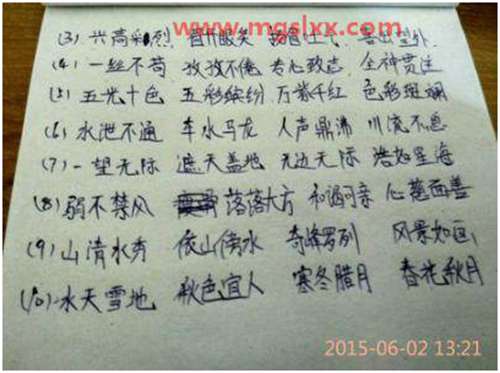 www.mgslxx.com
(3) 兴高彩烈 眉开眼笑 喜出望外
(4) 一丝不苟 孜孜不倦 专心致志 全神贯注
(5) 五光十色 五彩缤纷 万紫千红 色彩斑斓
(6) 水泄不通 车水马龙 人声鼎沸 川流不息
(7) 一望无际 遮天盖地 无边无际 浩如星海
(8) 弱不禁风 落落大方 和谒可亲 心慈面善
(9) 山清水秀 依山傍水 奇峰罗列 风景如画
(10) 水天雪地 秋色宜人 寒冬腊月 春花秋月
2015-06-02 13:21